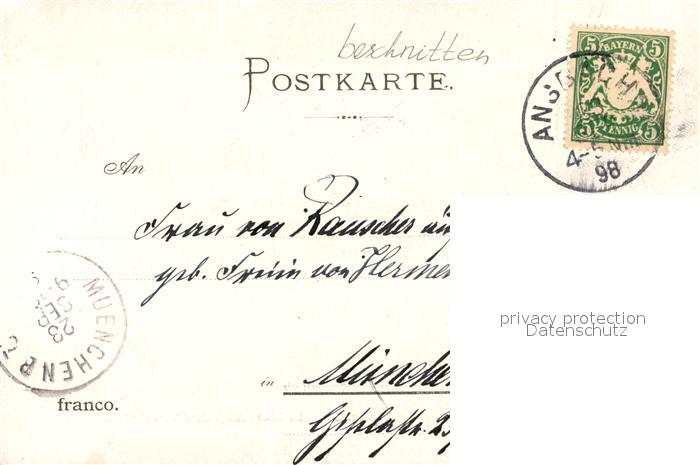 beschnitten
POSTKARTE.
5 BAYERN 5
5 PFENNIG 5
ANSBACH
4-5 NM
98
An
Frau von Rauscher
geb. Freiin von
MUENCHEN
23 SEP
in München
franco.
privacy protection
Datenschutz